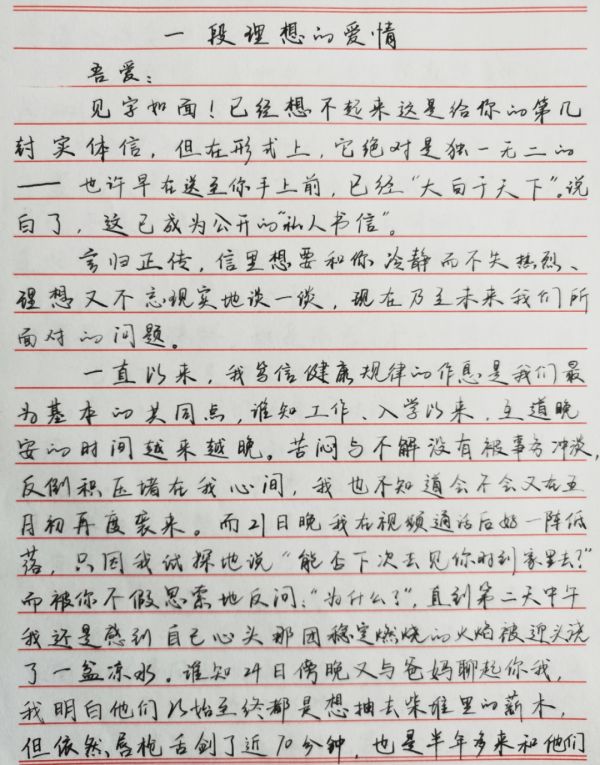 一段理想的爱情
吾爱：
见字如面！已经想不起来这是给你的第几
封实体信，但在形式上，它绝对是独一无二的
—— 也许早在送至你手上前，已经“大白于天下”。说
白了，这已成为公开的“私人书信”。
言归正传，信里想要和你冷静而不失热烈、
理想又不忘现实地谈一谈，现在乃至未来我们所
面对的问题。
一直以来，我笃信健康规律的作息是我们最
为基本的共同点，谁知工作、入学以来，互道晚
安的时间越来越晚。苦闷与不解没有被事务冲淡，
反倒积压堵在我心间，我也不知道会不会又在五
月初再度袭来。而21日晚我在视频通话后好一阵低
落，只因我试探地说“能否下次去见你时到家里去？”
而被你不假思索地反问：“为什么？”，直到第二天中午
我还是感到自己心头那团稳定燃烧的火焰被迎头浇
了一盆凉水。谁知24日傍晚又与爸妈聊起你我，
我明白他们从始至终都是想抽去柴堆里的薪木，
但依然唇枪舌剑了近70分钟，也是半年多来和他们